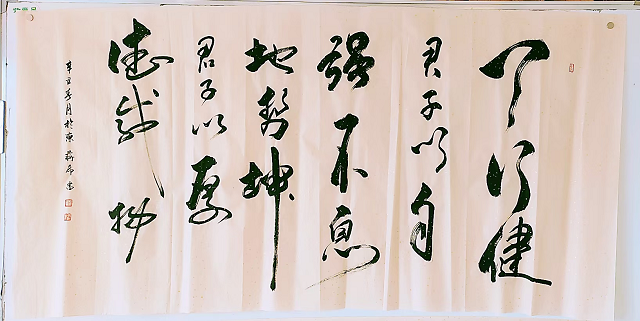 天行健
君子以自
强不息
地勢坤
君子以厚
德载物
辛丑 月於